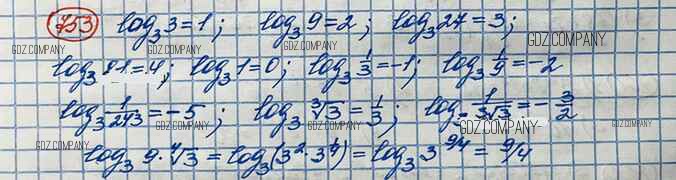 753 log₃3=1; log₃9=2; log₃27=3;
log₃81=4; log₃1=0; log₃ 1/3=-1; log₃ 1/9=-2
log₃ 1/243=-5; log₃ ∛3=1/3; log₃ 1/3√3=-3/2
log₃ 9·⁴√3=log₃(3²·3^¼)=log₃3^9/4=9/4
GDZ.COMPANY GDZ.COMPANY GDZ.COMPANY
GDZ.COMPANY GDZ.COMPANY GDZ.COMPANY
GDZ.COMPANY GDZ.COMPANY GDZ.COMPANY
GDZ.COMPANY GDZ.COMPANY